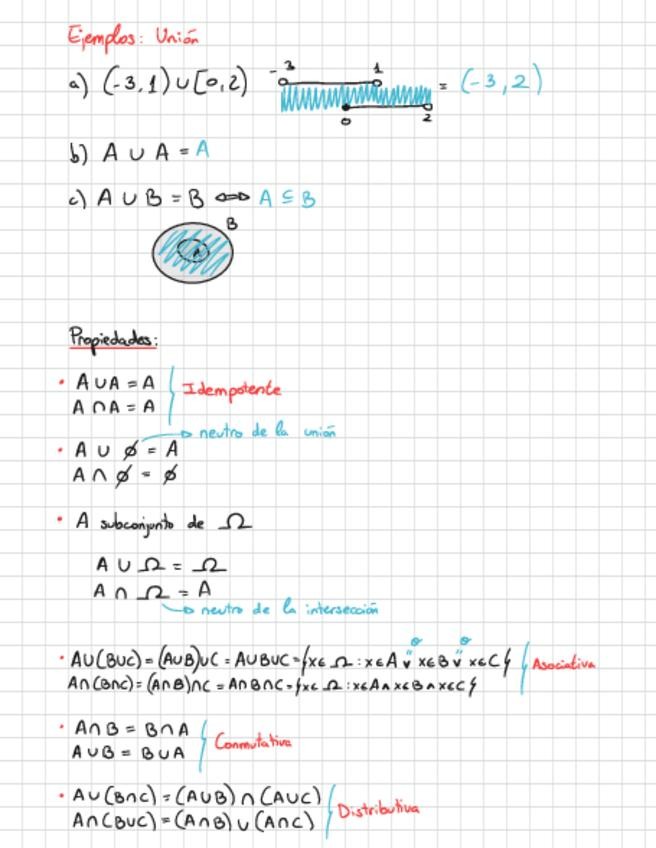 Ejemplos: Unión
a) (-3,1) ∪ [0,2) -3 1 0 2 = (-3,2)
b) A ∪ A = A
c) A ∪ B = B ⟺ A ⊆ B
B
A
Propiedades:
• A ∪ A = A
A ∩ A = A
Idempotente
neutro de la unión
• A ∪ ∅ = A
A ∩ ∅ = ∅
• A subconjunto de Ω
A ∪ Ω = Ω
A ∩ Ω = A
neutro de la intersección
o o
• A∪(B∪C) = (A∪B)∪C = A∪B∪C = {x∈ Ω : x∈A ∨ x∈B ∨ x∈C} Asociativa
A∩(B∩C) = (A∩B)∩C = A∩B∩C = {x∈ Ω : x∈A ∧ x∈B ∧ x∈C}
• A∩B = B∩A
A∪B = B∪A
Conmutativa
• A∪(B∩C) = (A∪B) ∩ (A∪C)
A∩(B∪C) = (A∩B) ∪ (A∩C)
Distributiva